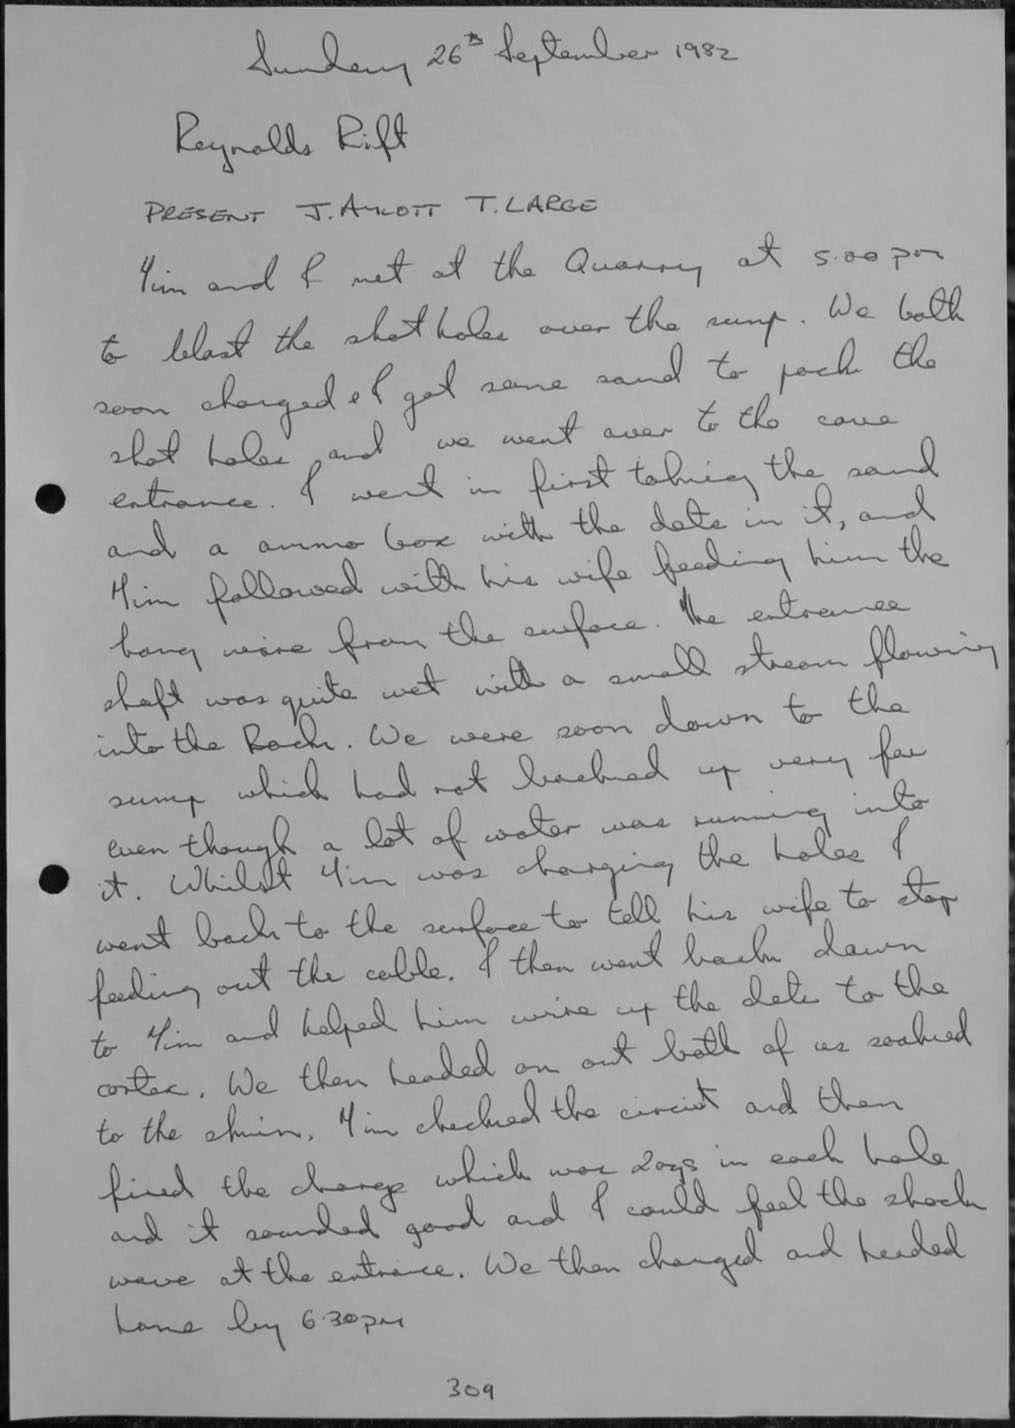 Sunday 26th September 1982
Reynolds Rift
PRESENT J. AYLOTT T. LARGE
Tim and I met at the Quarry at 5.00pm
to blast the shot holes over the sump. We both
soon changed & I got some sand to pack the
shot holes and we went over to the cave
entrance. I went in first taking the sand
and a ammo box with the dets in it, and
Tim followed with his wife feeding him the
bang wire from the surface. The entrance
shaft was quite wet with a small stream flowing
into the Rock. We were soon down to the
sump which had not backed up very far
even though a lot of water was running into
it. Whilst Tim was charging the holes I
went back to the surface to tell his wife to stop
feeding out the cable. I then went back down
to Tim and helped him wire up the dets to the
cortex. We then headed on out both of us soaked
to the skin. Tim checked the circiut and then
fired the charge which was 2ozs in each hole
and it sounded good and I could feel the shock
wave at the entrance. We then changed and headed
home by 6.30pm
309